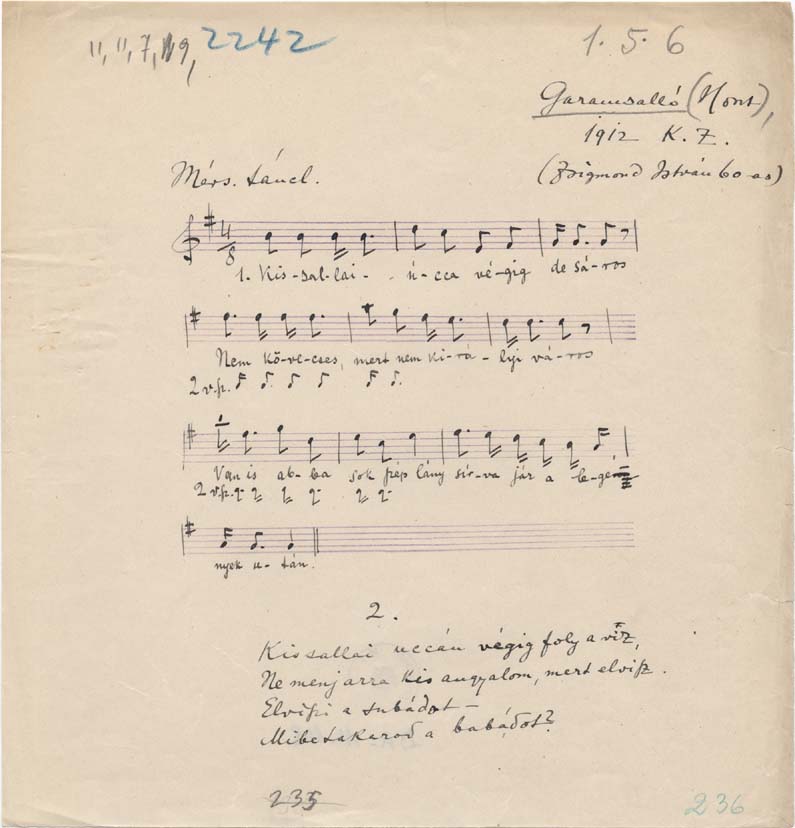 11, 11, 7, 9, 2242
1. 5. 6
Garamsalló (Hont),
1912 K. Z.
(Zsigmond István 60-as)
Mérs. táncl.
4/8
1. Kis-sal-lai- ú-cca vé-gig de sá-ros
Nem kö-ve-cses, mert nem ki-rá-lyi vá-ros
2 v.sz.
Van is ab-ba sok szép lány sír-va jár a le-ge-
2 v.sz.
nyek u-tán.
2.
Kissallai uccán végig foly a víz,
Ne menj arra kis angyalom, mert elvisz.
Elviszi a subádot –
Mibe takarod a babádot?
235
236